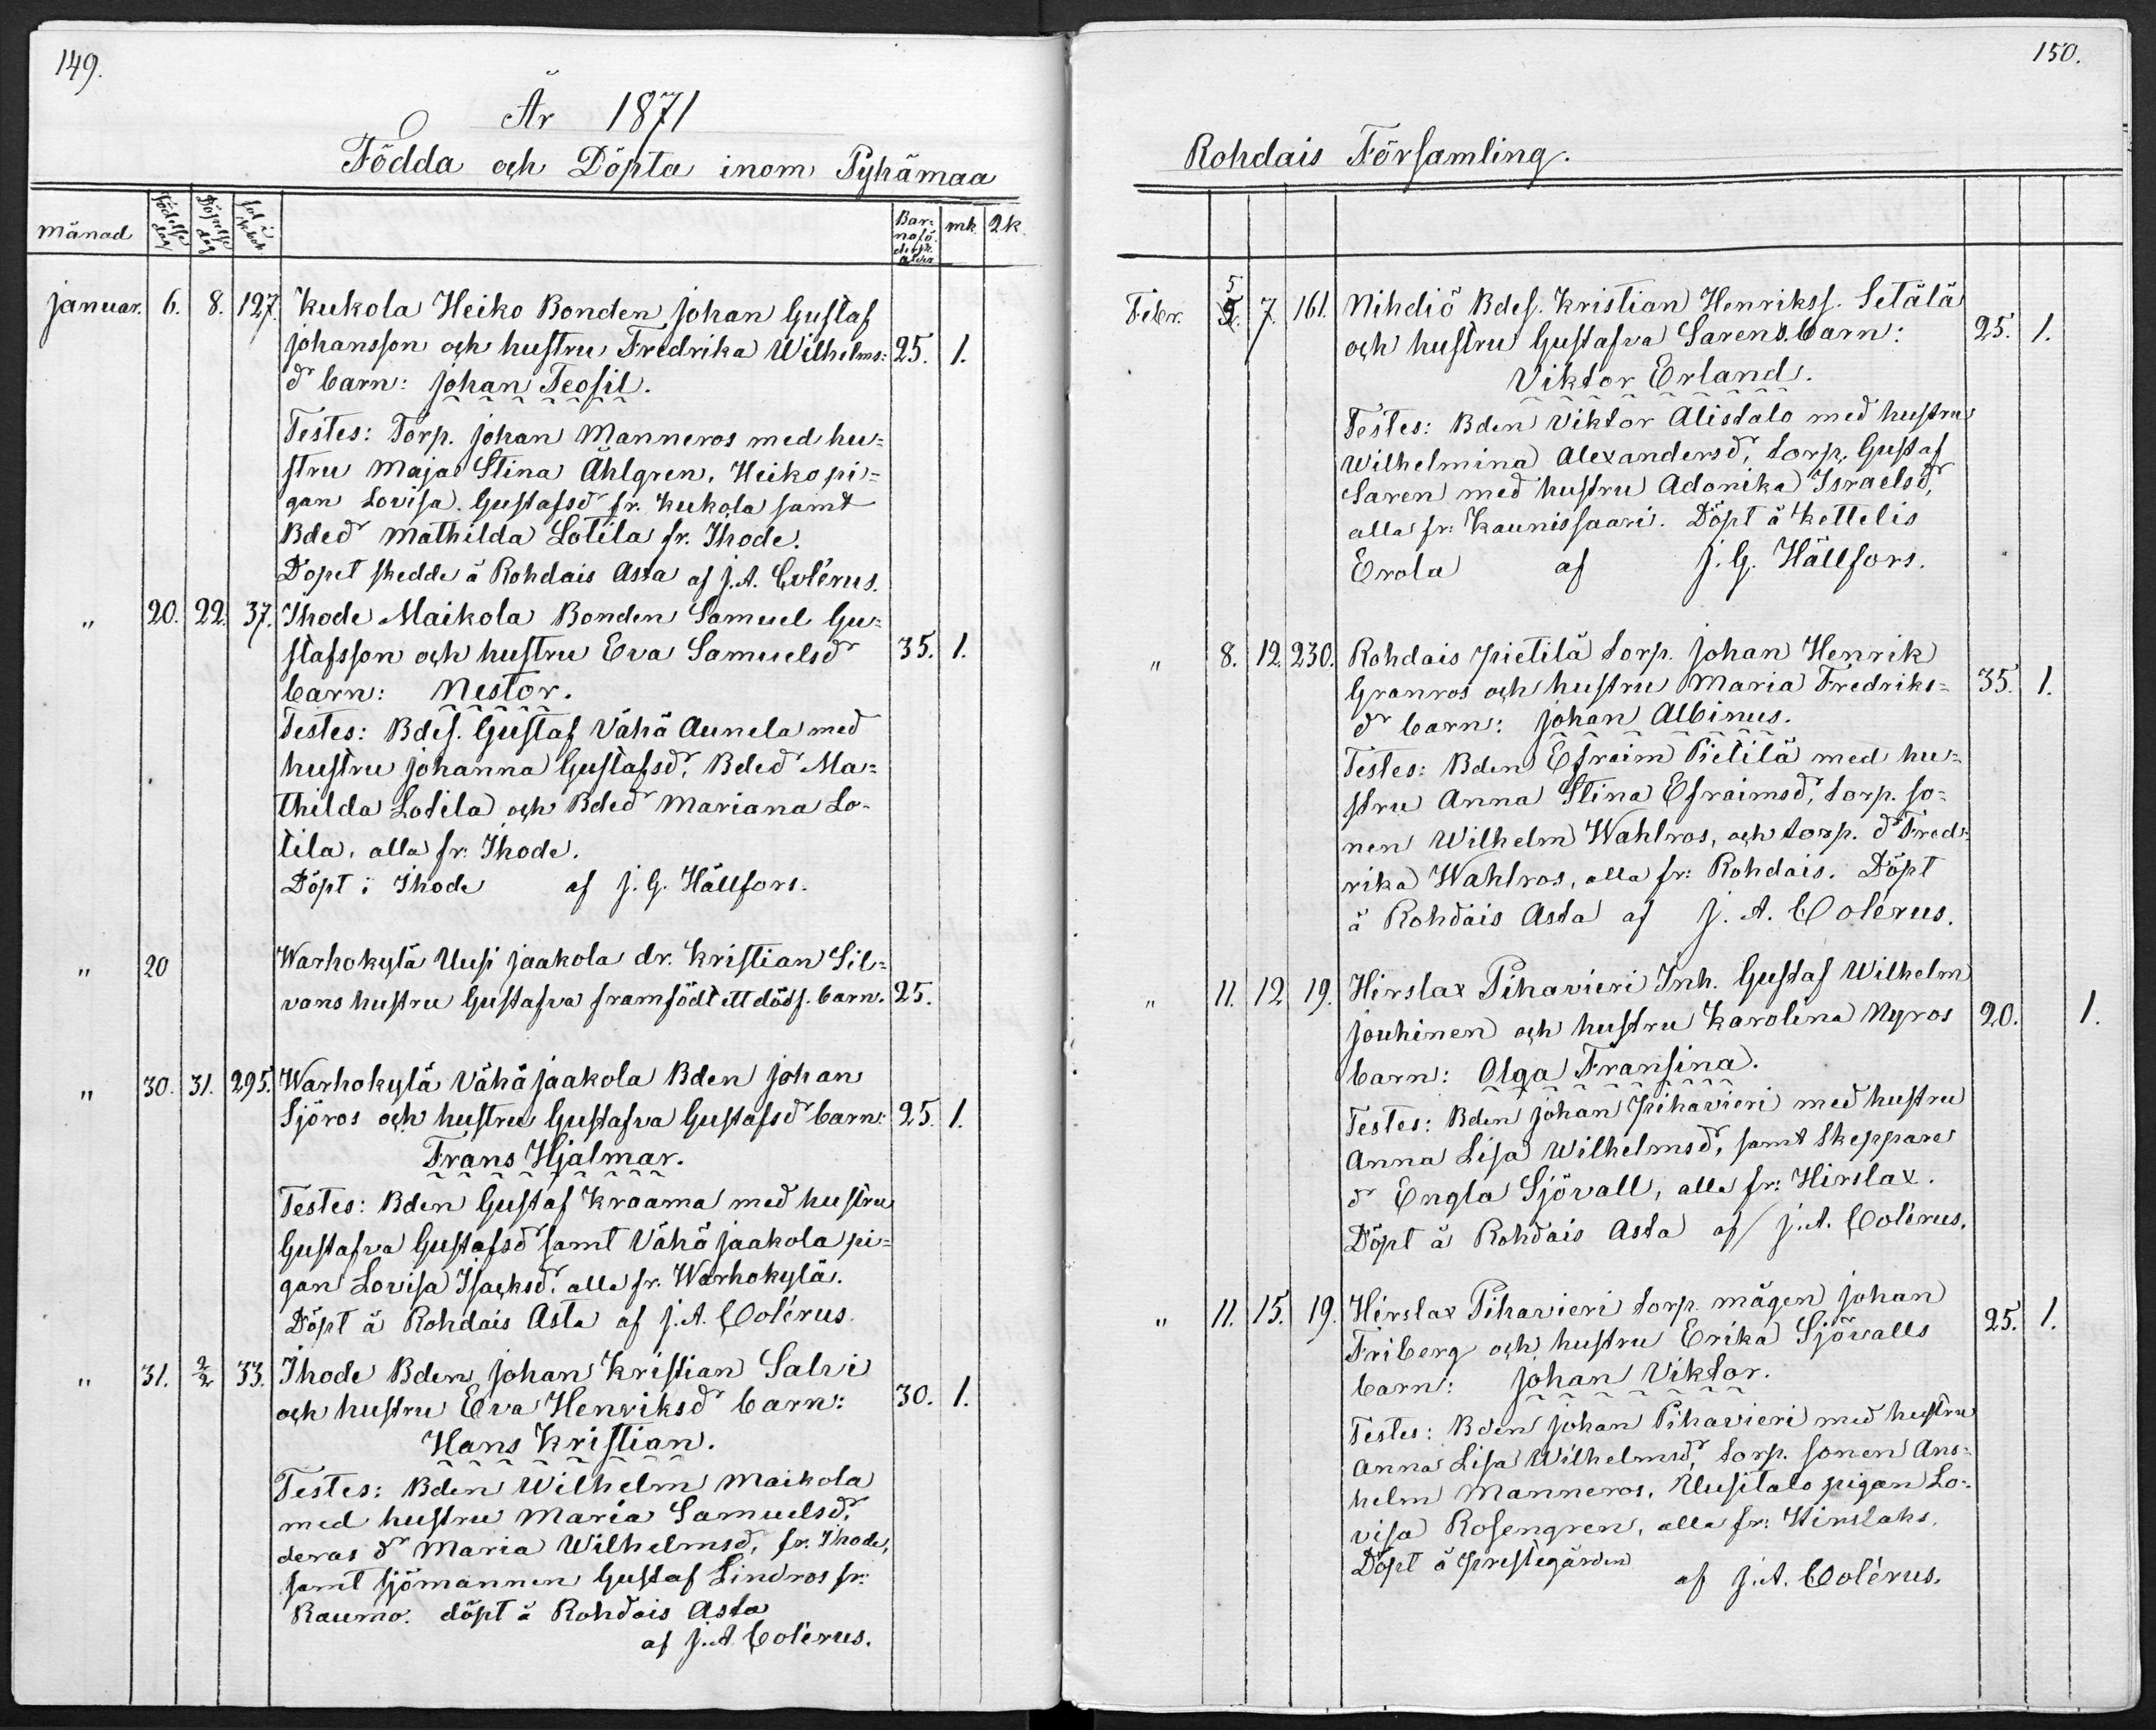 149.
År 1871
Födda och Döpta inom Pyhämaa
Månad Födelse dag Döpelse dag fol i k.bok Barnaföderskans ålder mk. Qk.
Januar. 6. 8. 127. Kukola Heiko Bonden Johan Gustaf
Johansson och hustru Fredrika Wilhelms= 25. 1.
dr barn: Johan Teofil.
Testes: Torp. Johan Manneros med hu=
stru Maja Stina Ählgren, Heiko pi=
gan Lovisa Gustafsdr fr. Kukola samt
Bdedr Mathilda Lotila fr. Ihode.
Dopet skedde å Rohdais Asta af J. A. Colérus.
" 20. 22. 37. Ihode Maikola Bonden Samuel Gu=
stafsson och hustru Eva Samuelsdr 35. 1.
barn: Nestor.
Testes: Bdes. Gustaf Vähä Aunela med
hustru Johanna Gustafsdr, Bdedr Ma=
thilda Lotila och Bdedr Mariana Lo-
tila, alla fr. Ihode.
Döpt i Ihode af J. G. Hällfors.
" 20 Warhokylä Uusi Jaakola dr. Kristian Sil=
vans hustru Gustafva framfödt ett dödf. barn. 25.
" 30. 31. 295. Warhokylä Vähä Jaakola Bden Johan
Sjöros och hustru Gustafva Gustafsdr barn: 25. 1.
Frans Hjalmar.
Testes: Bden Gustaf Kraama med hustru
Gustafva Gustafsdr samt Vähä Jaakola pi=
gan Lovisa Isacksdr. alla fr. Warhokylä.
Döpt å Rohdais Asta af J. A. Colérus.
" 31. 2/2 33. Ihode Bden Johan Kristian Salvi
och hustru Eva Henriksdr barn: 30. 1.
Hans Kristian.
Testes: Bden Wilhelm Maikola
med hustru Maria Samuelsdr,
deras dr Maria Wilhelmsd, fr. Ihode,
samt sjömannen Gustaf Lindros fr:
Raumo. döpt å Rohdais Asta
af J. A. Colérus.
150.
Rohdais Församling.
Febr. 5 7. 161. Nihdiö Bdes. Kristian Henrikss. Setälä
och hustru Gustafva Sarens barn: 25. 1.
Viktor Erland.
Testes: Bden Viktor Alistalo med hustru
Wilhelmina Alexandersdr, torp. Gustaf
Saren med hustru Adonika Israelsdr,
alla fr. Kaunissaari. Döpt å Kettelis
Erola af J. G. Hällfors.
" 8. 12. 230. Rohdais Pietilä torp. Johan Henrik
Granros och hustru Maria Fredriks= 35. 1.
dr barn: Johan Albinus.
Testes: Bden Efraim Pietilä med hu=
stru Anna Stina Efraimsdr, torp. so=
nen Wilhelm Wahlros, och torp. dr Fred=
rika Wahlros, alla fr: Rohdais. Döpt
å Rohdais Asta af J. A. Colérus.
" 11. 12 19. Hirslax Pihavieri Inh. Gustaf Wilhelm
Jouhinen och hustru Karolina Nyros 20. 1.
barn: Olga Fransina.
Testes: Bden Johan Pihavieri med hustru
Anna Lisa Wilhelmsdr, samt Skeppare
dr Engla Sjövall, alla fr: Hirslax.
Döpt å Rohdais Asta af J. A. Colérus.
" 11. 15. 19. Hirslax Pihavieri torp. mågen Johan
Friberg och hustru Erika Sjövalls 25. 1.
barn: Johan Viktor.
Testes: Bden Johan Pihavieri med hustru
Anna Lisa Wilhelmsdr, torp. sonen Ans=
helm Manneros, Uusitalo pigan Lo=
visa Rosengren, alla fr: Hirslaks.
Döpt å prestegården
af J. A. Colérus.